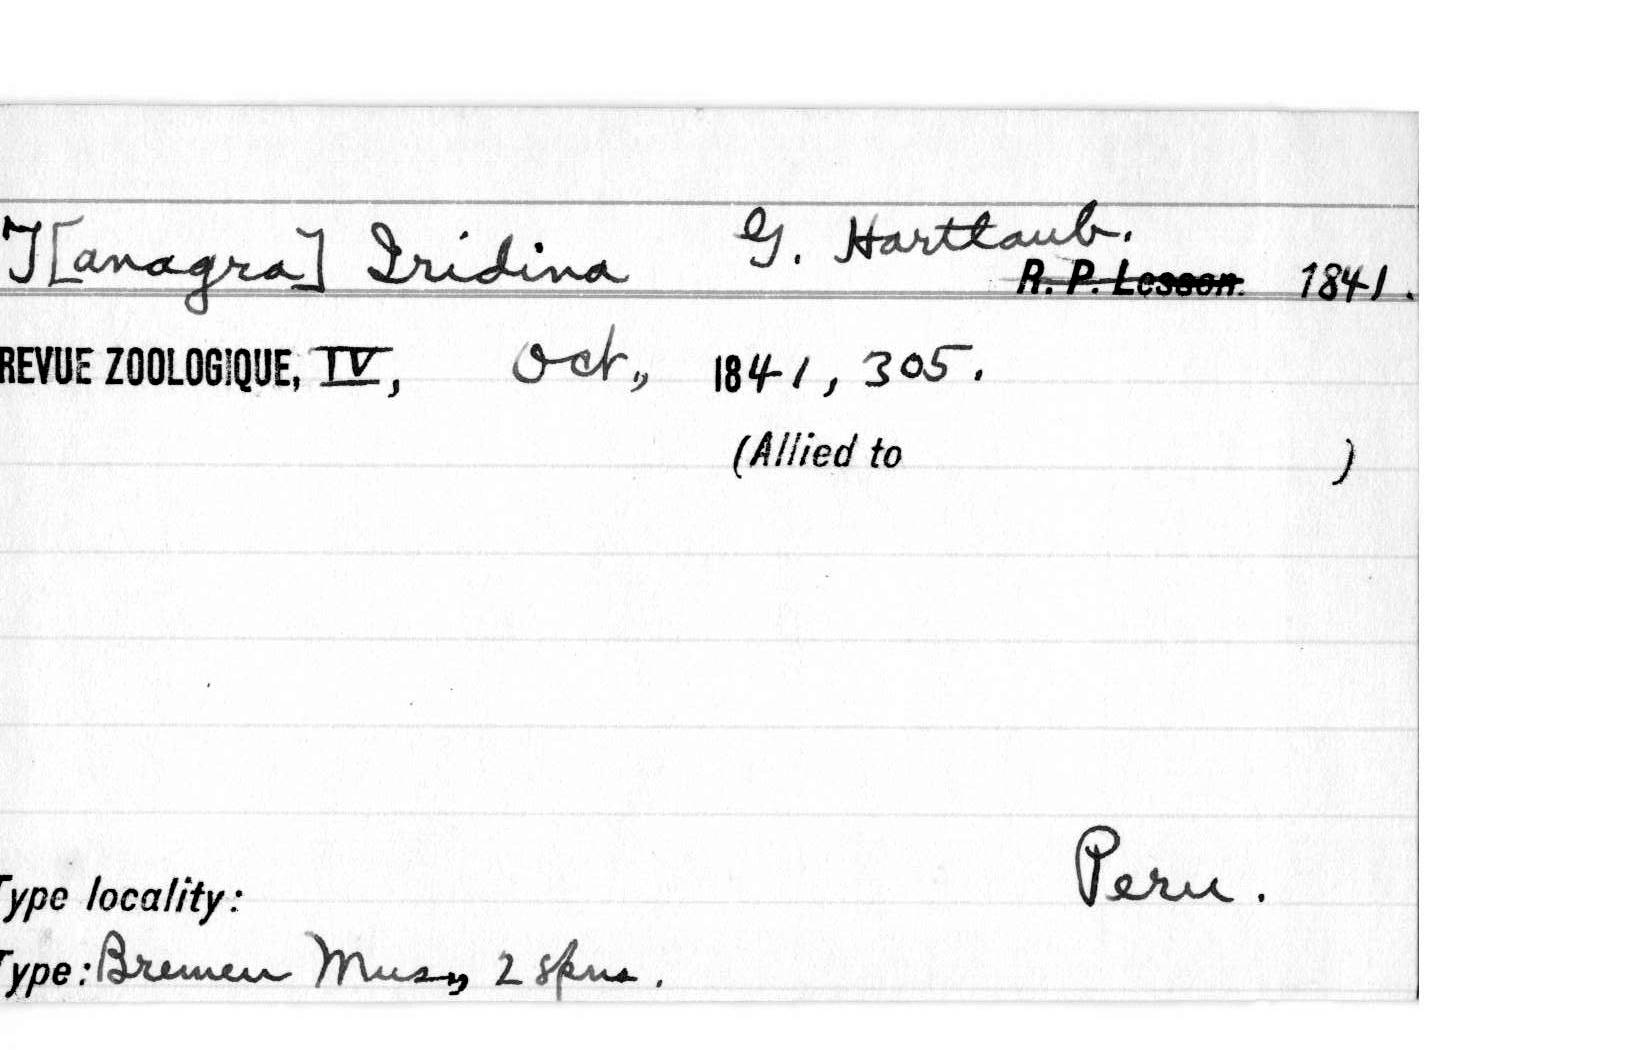 T[anagra] Iridina G. Hartlaub.
R. P. Lesson. 1841.
REVUE ZOOLOGIQUE, IV, Oct., 1841, 305.
(Allied to )
Type locality: Peru.
Type: Bremen Mus., 2 spns.